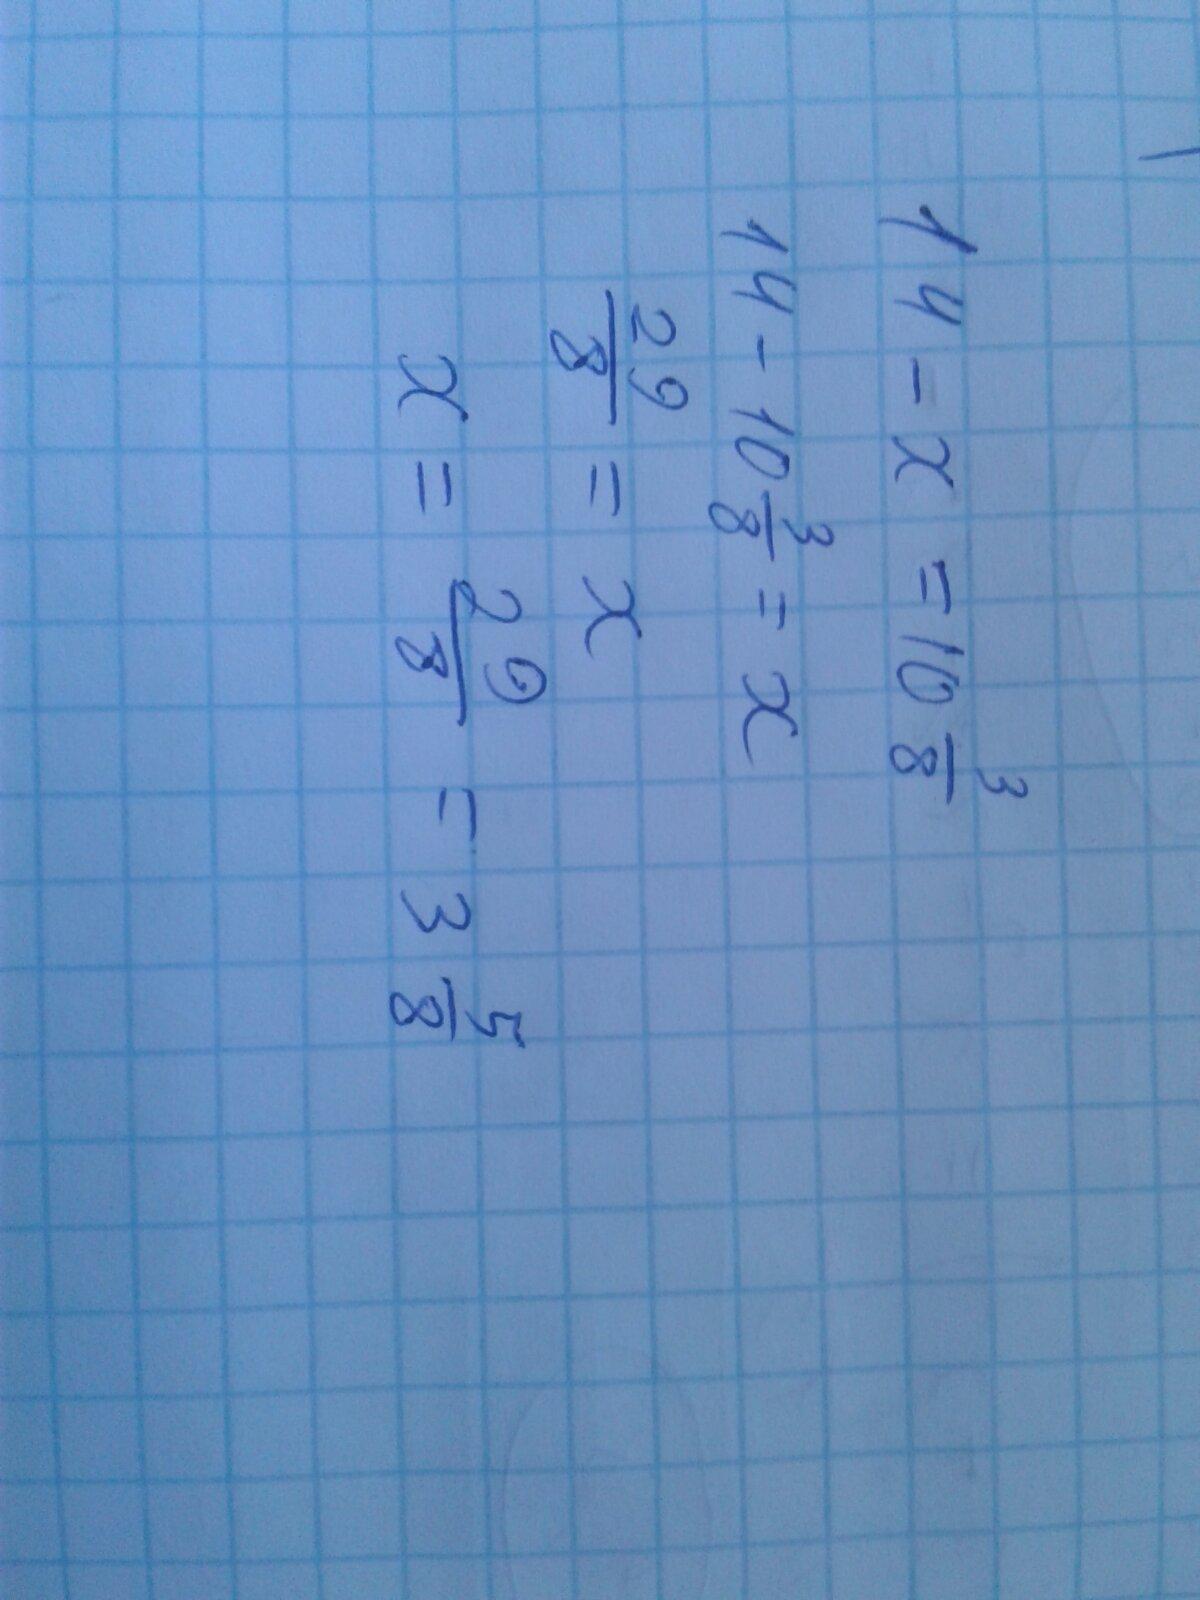 14 - x = 10 3/8
14 - 10 3/8 = x
29/8 = x
x = 29/8 = 3 5/8